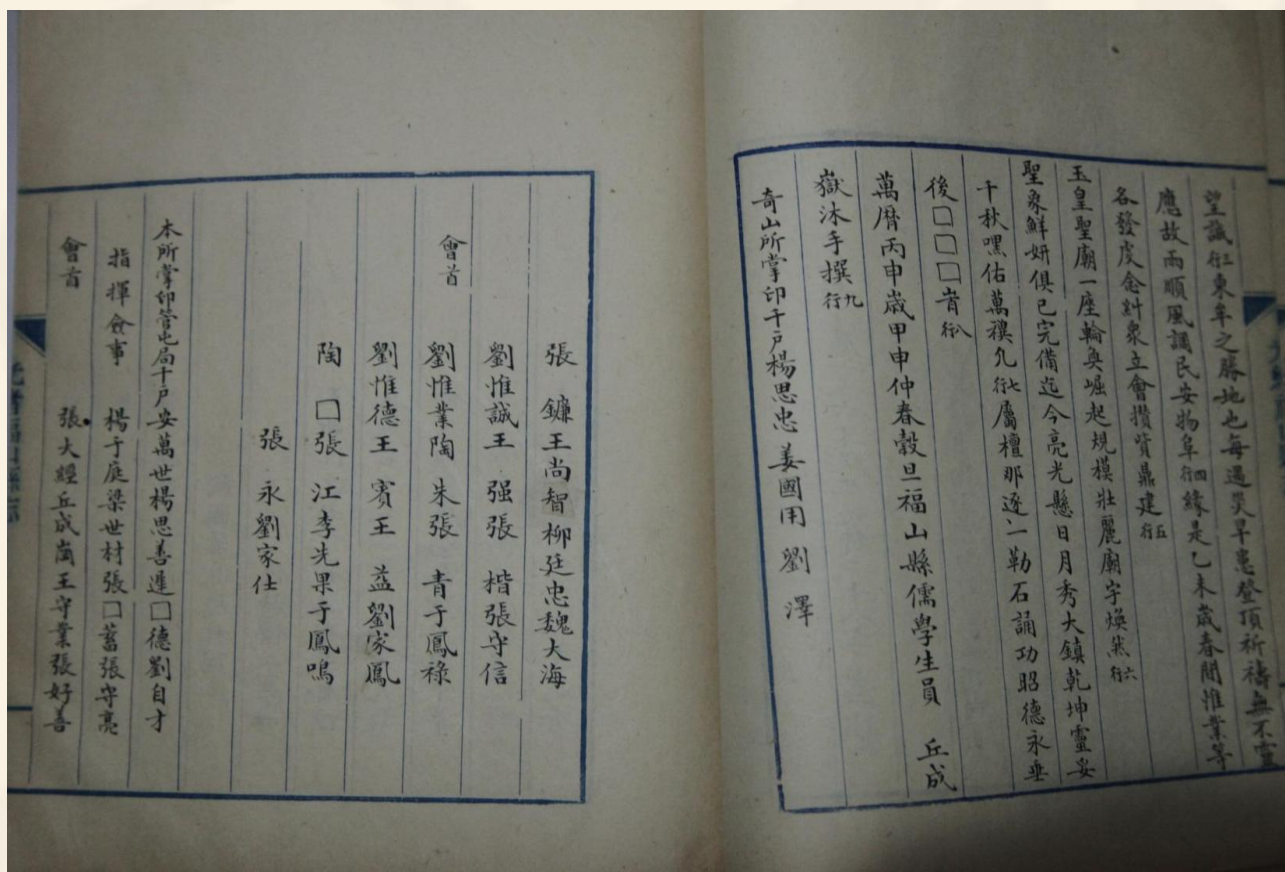 望誠行三東牟之勝地也每遇災旱患登頂祈禱無不靈
應故雨順風調民安物阜行四緣是乙未歲春間惟業等
各發虔念糾衆立會攢貲鼎建行五
玉皇聖廟一座輪奐崛起規模壯麗廟宇煥然行六
聖象鮮妍俱已完備迄今亮光懸日月秀大鎮乾坤靈妥
千秋嘿佑萬禩凢行七屬檀那逐一勒石誦功昭德永垂
後□□□旹行八
萬曆丙申歲甲申仲春穀旦福山縣儒學生員 丘成
嶽沐手撰行九
奇山所掌印千戶楊思忠 姜國用 劉 澤
張 鐮王尚智柳廷忠魏大海
劉惟誠王 强張 楷張守信
會首 劉惟業陶 朱張 青于鳳祿
劉惟德王 賓王 益劉家鳳
陶 □張 江李先果于鳳鳴
張 永劉家仕
本所掌印管屯局千戶安萬世楊思善遲□德劉自才
指揮僉事 楊于庭梁世材張□蓄張守亮
會首 張大經丘成崗王守業張好善